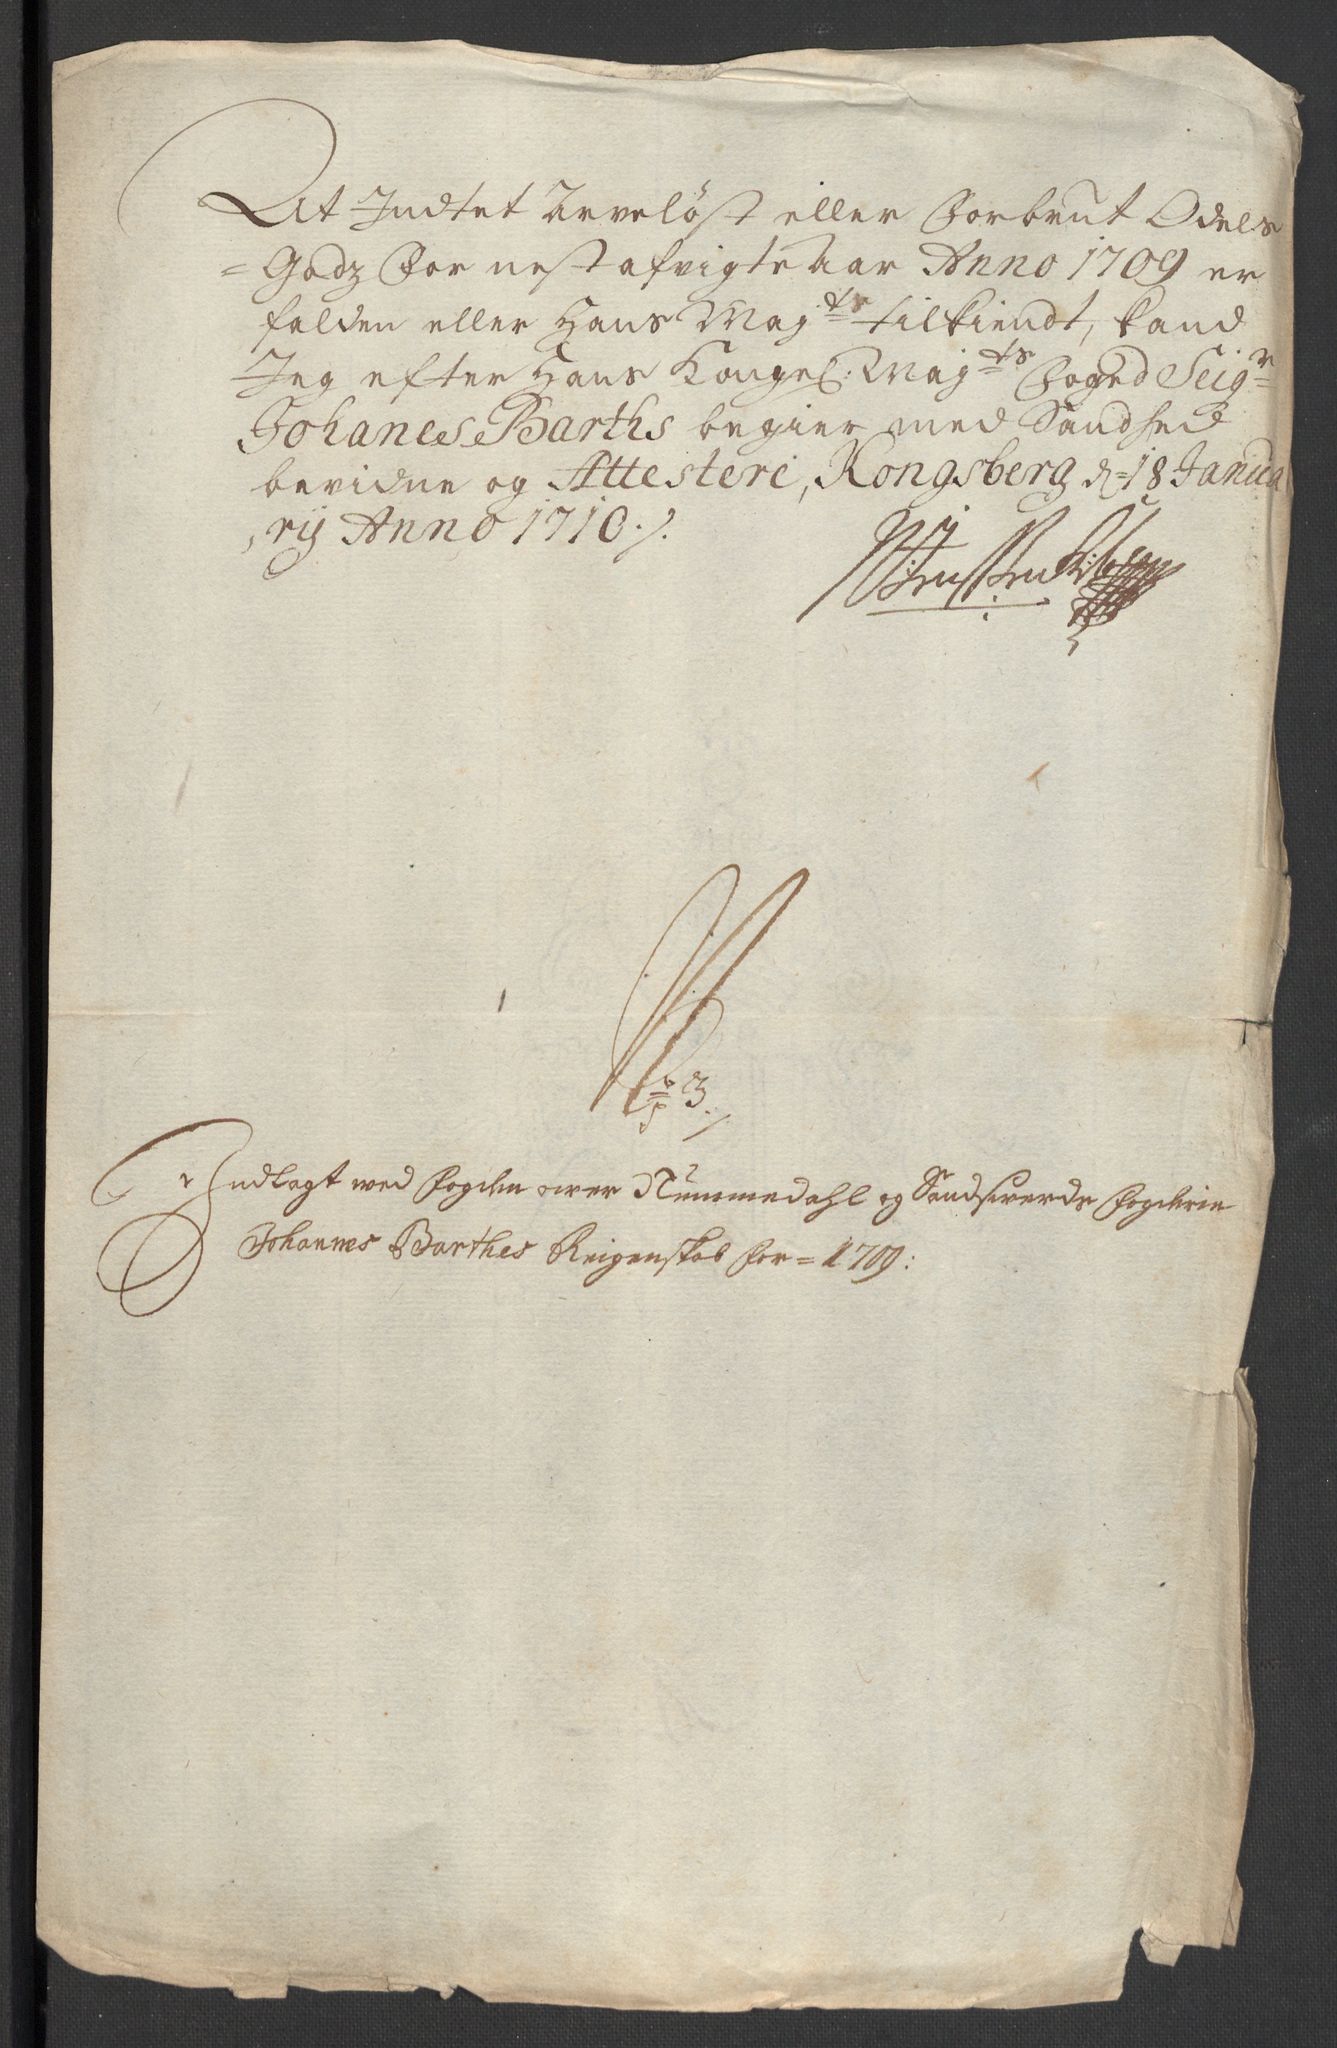 At Indtet Arveløst eller Forbrut Odels
= Godz for nest afvigte aar Anno 1709 er
falden eller Hans Maj:ts tilkiendt, kand
Jeg efter Hans Kongel: Maj:ts foged Seig:r
Johanes Barths begier med Sandhed
bevidne og Attestere, Kongsberg d: 18 Janua
, rij Anno 1710 ./.
No 3 ./
Indlagt wed fogden ower Nummedahl og Sandswerds fogderie
Johannes Barthes Reigenskab for = 1709: